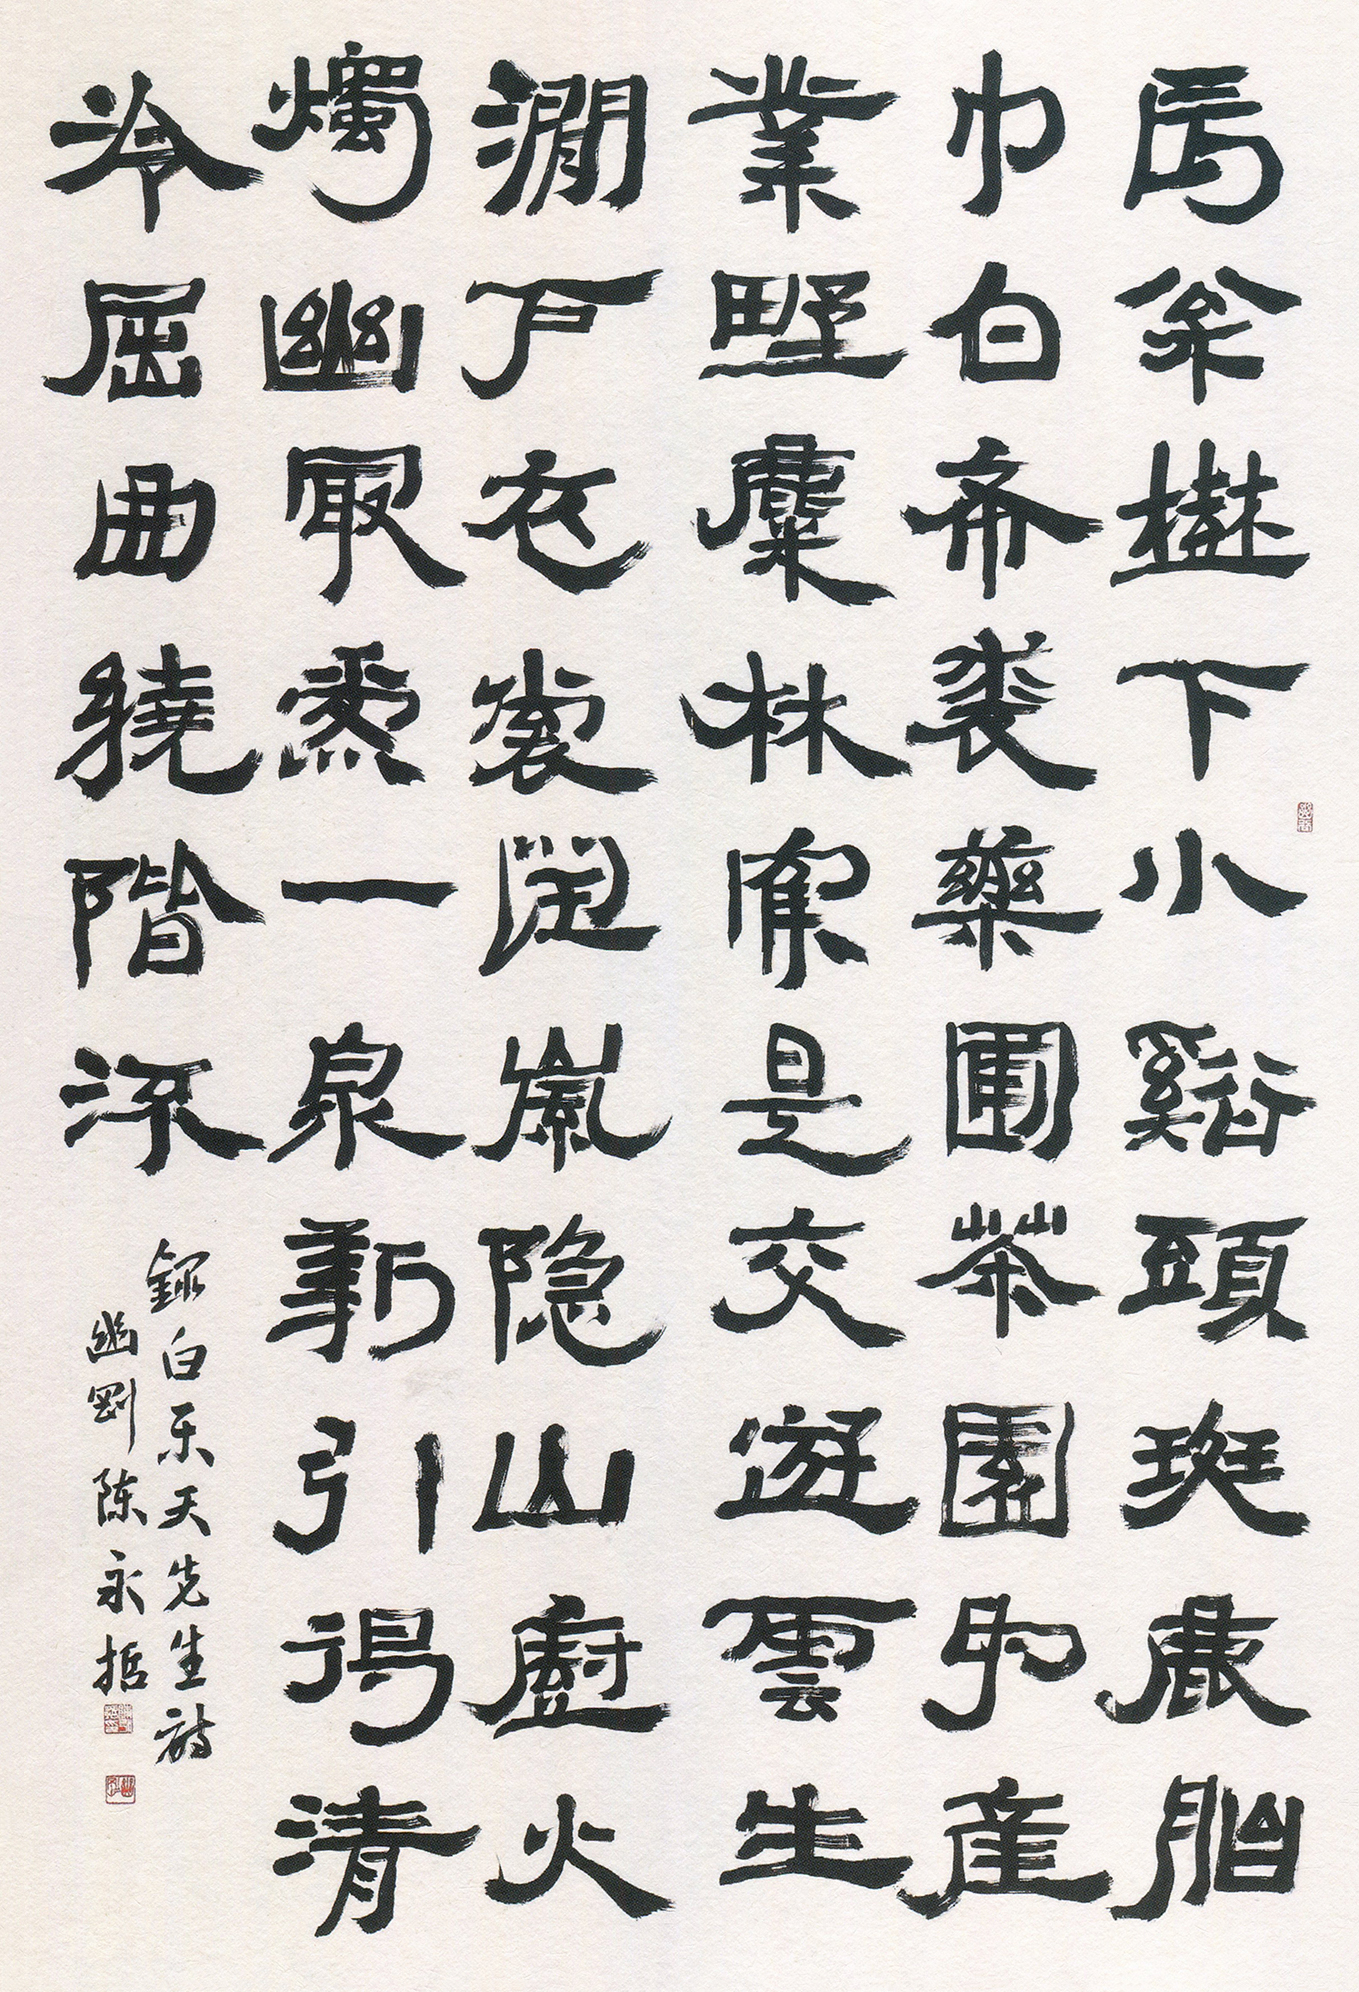 長松樹下小谿頭斑鹿胎
巾白布裘藥圃茶園為産
業野麋林鶴是交遊雲生
澗戶衣裳潤嵐隱山廚火
燭幽最愛一泉新引得清
泠屈曲繞階流
錄白樂天先生詩
幽剛陳永哲